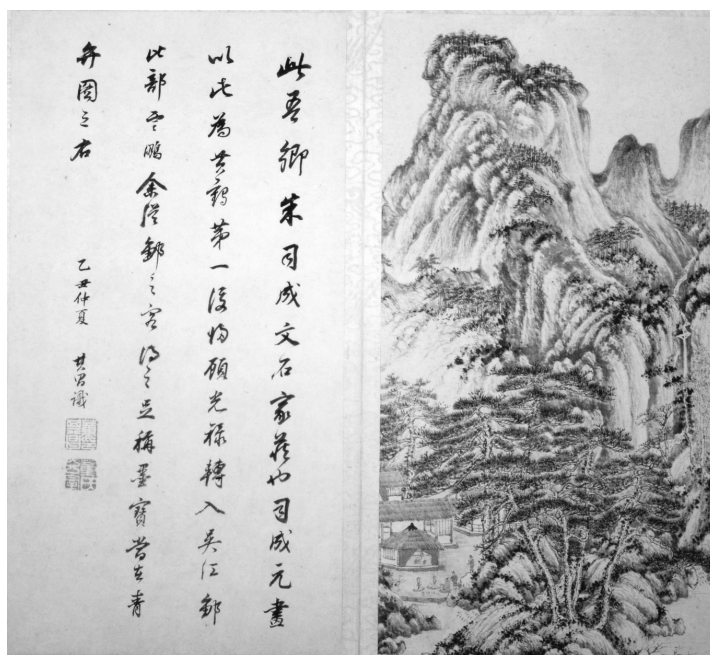 此吾鄉朱司成文石家藏也司成元畫
以此為黃鶴第一後歸顧光祿轉入吳江鄒
比部雲鵬余從鄒之客得之足稱墨寶當在青
弁圖之右
乙丑仲夏 其昌識